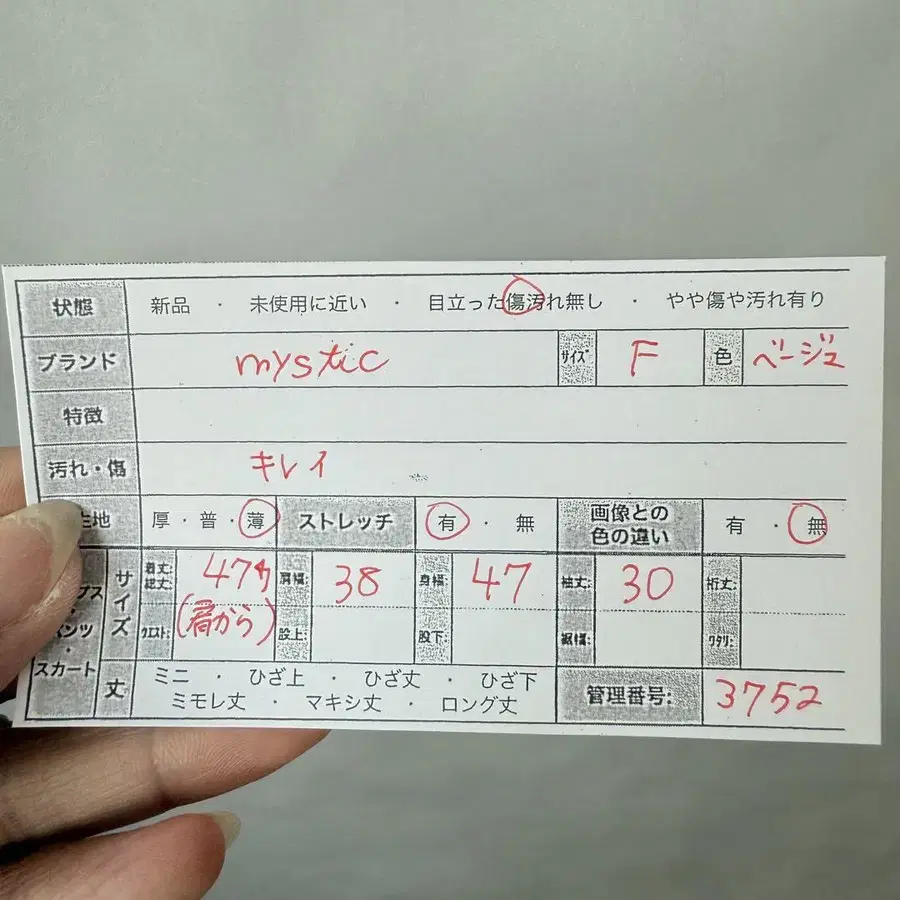 状態 新品 ・ 未使用に近い ・ 目立った傷汚れ無し ・ やや傷や汚れ有り
ブランド mystic サイズ F 色 ベージュ
特徴
汚れ・傷 キレイ
生地 厚・普・薄 ストレッチ 有・無 画像との色の違い 有・無
サイズ 着丈: 総丈: 47 肩幅: 38 身幅: 47 袖丈: 30 裄丈:
パンツ ウエスト: (肩から) 股下: 裾幅: ワタリ:
・
スカート 丈 ミニ ・ ひざ上 ・ ひざ丈 ・ ひざ下
ミモレ丈 ・ マキシ丈 ・ ロング丈
管理番号: 3752